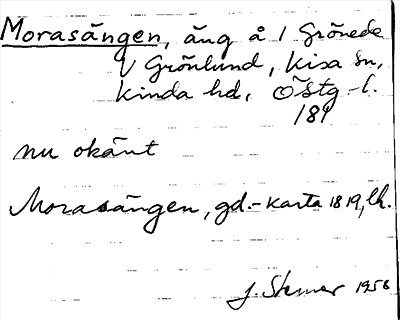 Morasängen, äng å 1 Grönede
V Grönlund, Kisa sn,
Kinda hd, Östg-l.
189
nu okänt
Morasängen, gd.-karta 1819, lh.
J. Stemer 1956